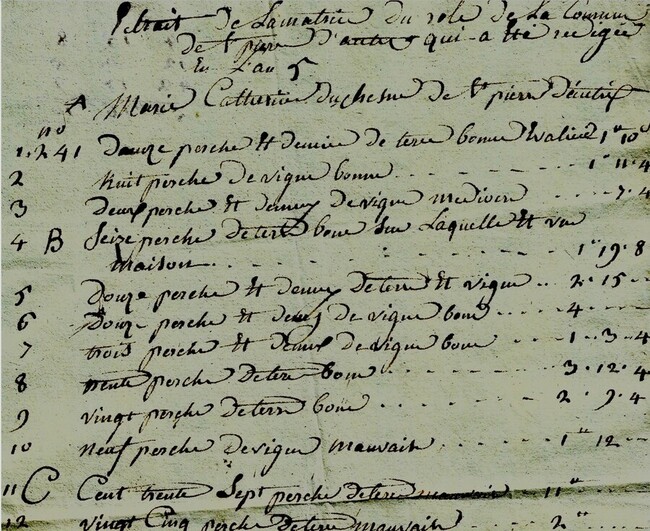 Extrait de Lamatrice du role de La Commune
de St pierre d'autez qui a été redigée
En L'an 5
A Marie Catherine duchesne de St pierre d'autez
no
1. 241 Douze perche Et demie de terre bonne Evaluée 1" 10
2 huit perche de vigne bonne 1" 11. 4
3 deux perche Et demy de vigne mediocre 7. 4
4 B Seize perche de terre bone Sur Laquelle Et une
maison 1" 19. 8
5 Douze perche Et demy de terre Et vigne 2. 15
6 Douze perche Et demy de vigne bone 4
7 trois perche Et demy de vigne bone 1. 3. 4
8 trente perche de terre bone 3. 12. 4
9 vingt perche de terre bone 2. 9. 4
10 neuf perche de vigne mauvaise 1" 12
11 C Cent trente Sept perche de terre mauvaise 11"
12 vingt Cinq perche de terre mauvaise 2"